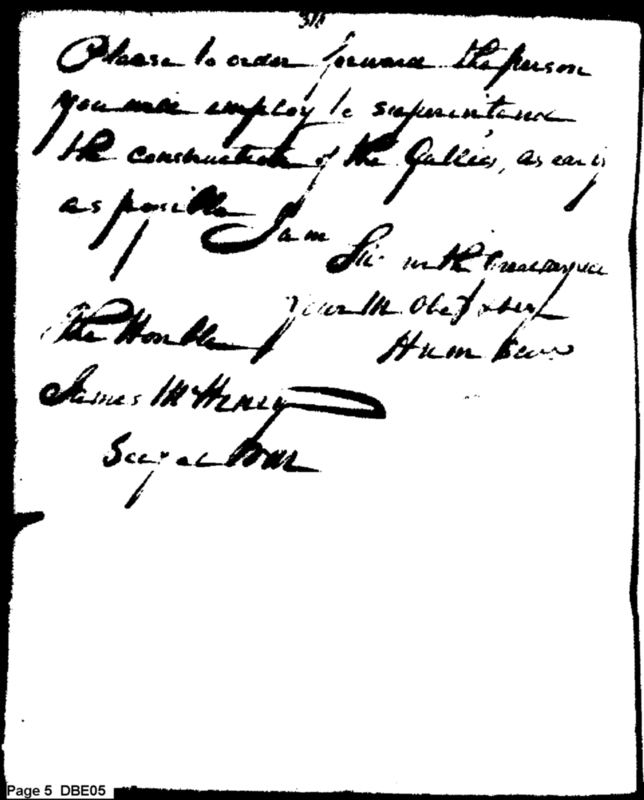 Please to order forward the person
you will employ to superintend
the construction of the Gallies, as early
as possible I am
Sir with the great
Your M Obet &
The Honble Hum
James McHenry
Secy at War
Page 5 DBE05